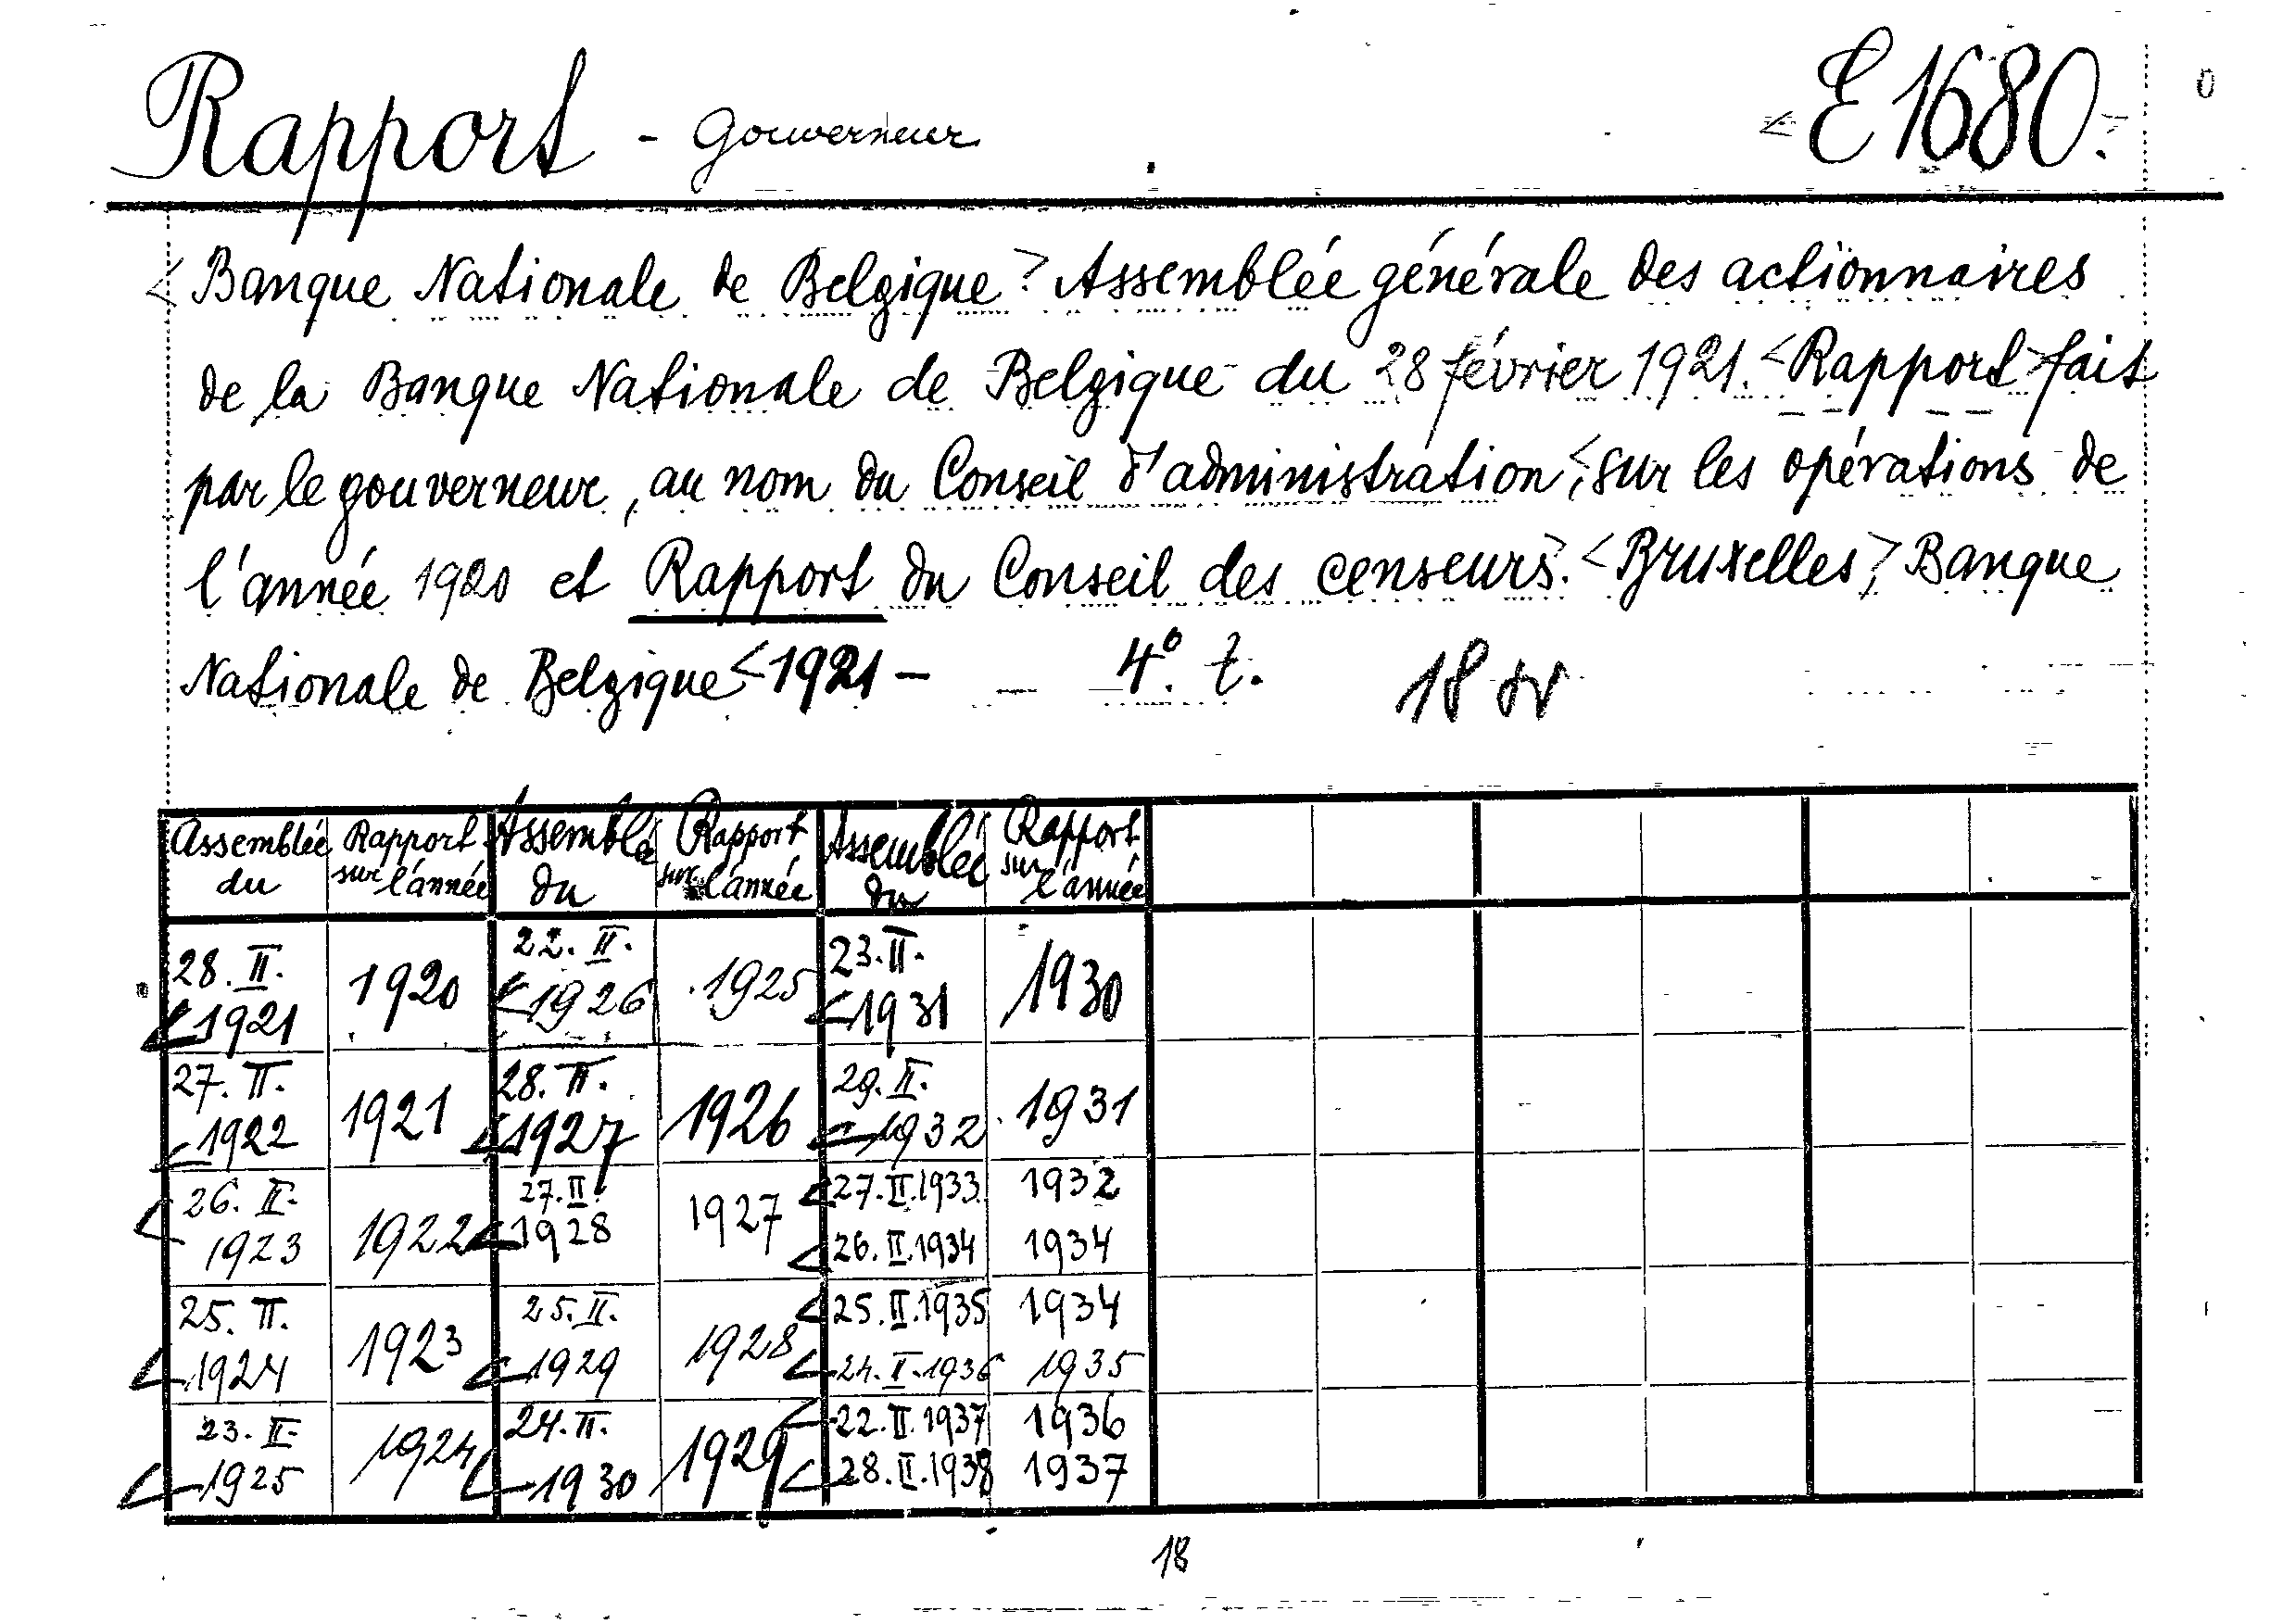 Rapport - Gouverneur <E1680.>
<Banque Nationale de Belgique> Assemblée générale des actionnaires
de la Banque Nationale de Belgique du 28 février 1921. <Rapport> fait
par le gouverneur, au nom du Conseil d'administration, <sur les opérations de
l'année 1920 et Rapport du Conseil des censeurs>. <Bruxelles,> Banque
Nationale de Belgique <1921 - 4° t. 18
Assemblée du Rapport sur l'année Assemblée du Rapport sur l'année Assemblée du Rapport sur l'année
28. II. <1921 1920 22. II. <1926 1925 23. II. <1931 1930
27. II. <1922 1921 28. II. <1927 1926 29. II. <1932 1931
26. II. <1923 1922 27. II. <1928 1927 <27. II. 1933 1932
<26. II. 1934 1934
25. II. <1924 1923 25. II. <1929 1928 <25. II. 1935 1934
<24. II. 1936 1935
23. II. <1925 1924 24. II. <1930 1929 <22. II. 1937 1936
<28. II. 1938 1937
18